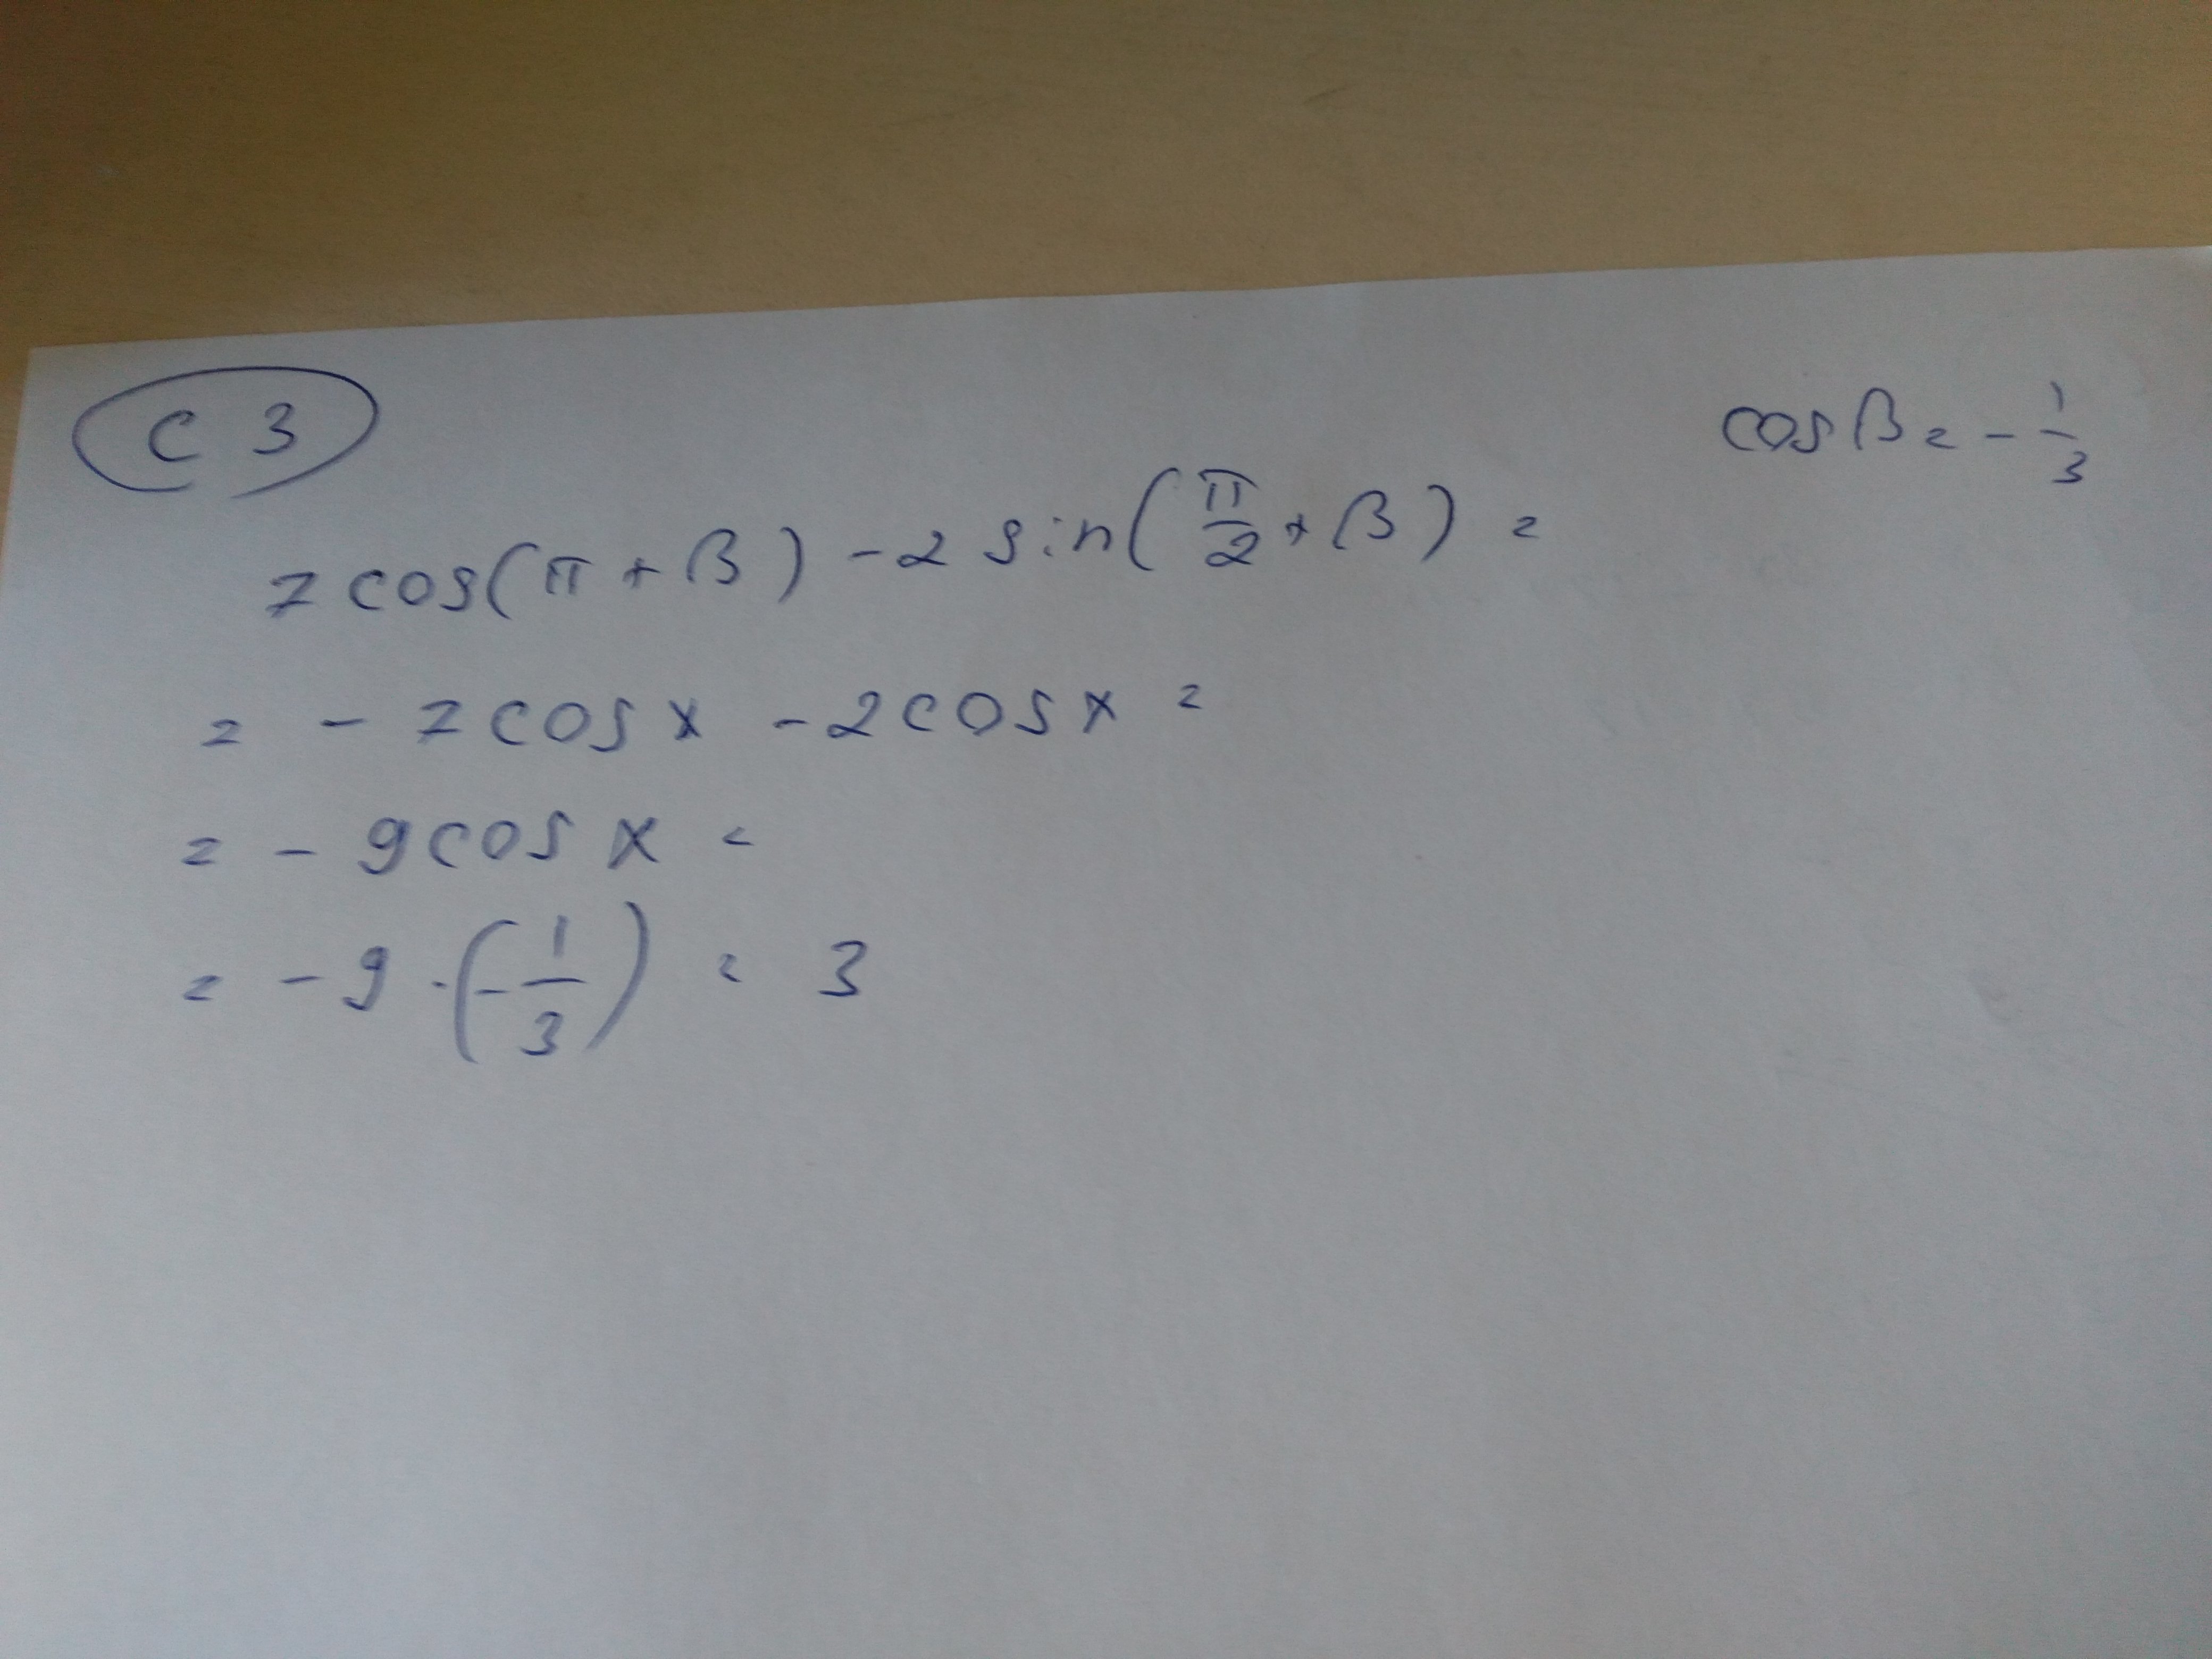 C 3
cos β = - 1/3
7 cos(π + β) - 2 sin(π/2 + β) =
= - 7 cos x - 2 cos x =
= - 9 cos x =
= - 9 · (- 1/3) = 3